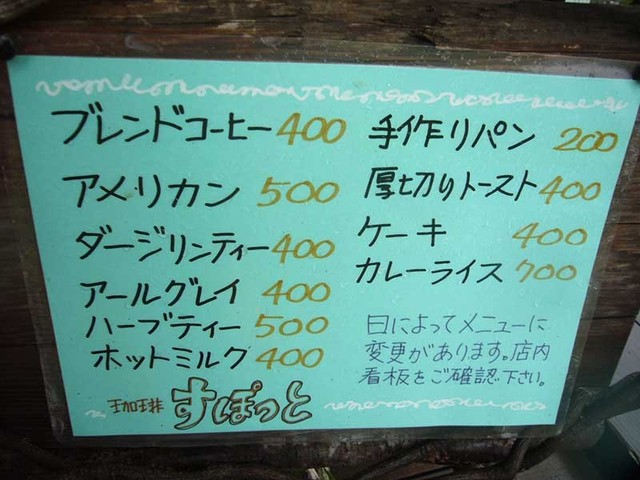 ブレンドコーヒー 400
アメリカン 500
ダージリンティー 400
アールグレイ 400
ハーブティー 500
ホットミルク 400
手作りパン 200
厚切りトースト 400
ケーキ 400
カレーライス 700
日によってメニューに
変更があります。店内
看板をご確認下さい。
珈琲 すぽっと